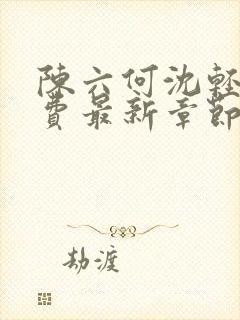 陳六何沈輕
費最新章節
劫渡